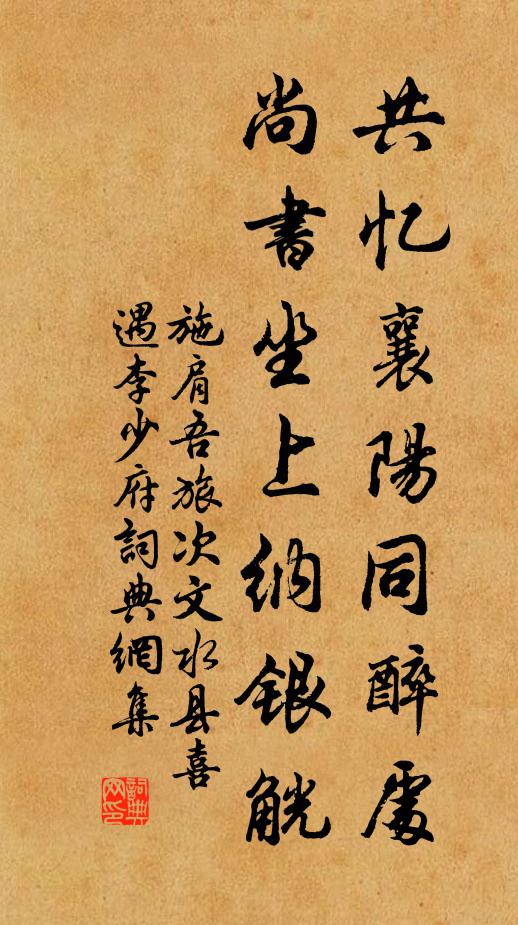 共忆襄陽同醉處
尚書坐上纳银觥
施肩吾旅次文水县喜
遇李少府詞典網集
詞典网印